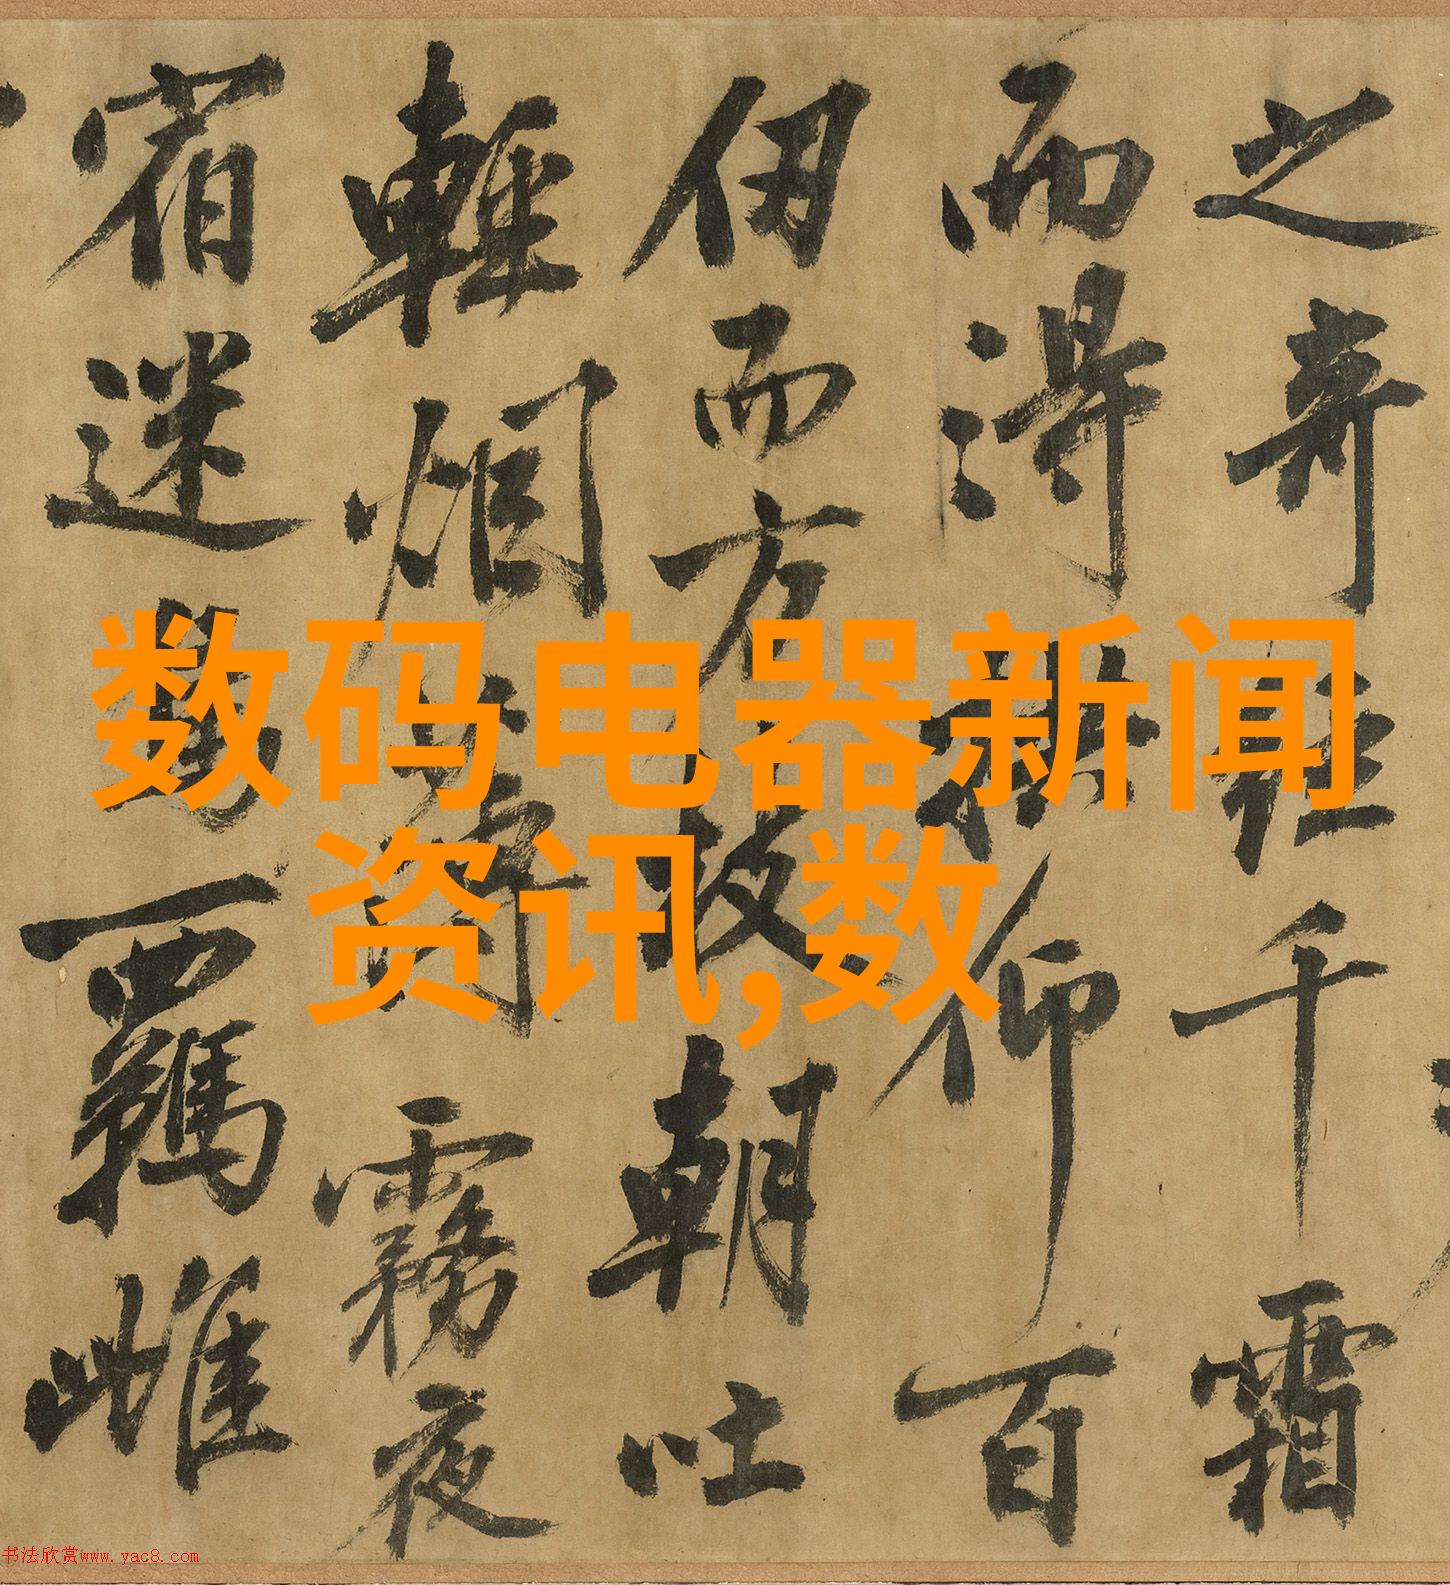 之奇
千霜
而得
仰百
伊而方
故朝吐
輕烟
霧夜
宿迷
羈雌
数码电器新闻
资讯,数
书法欣赏www.yac8.com